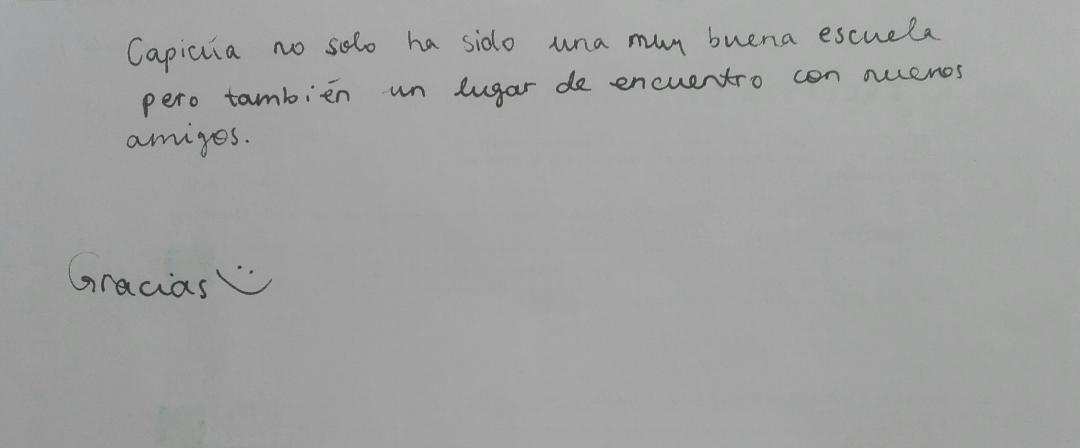 Capicúa no solo ha sido una muy buena escuela
pero también un lugar de encuentro con nuevos
amigos.
Gracias